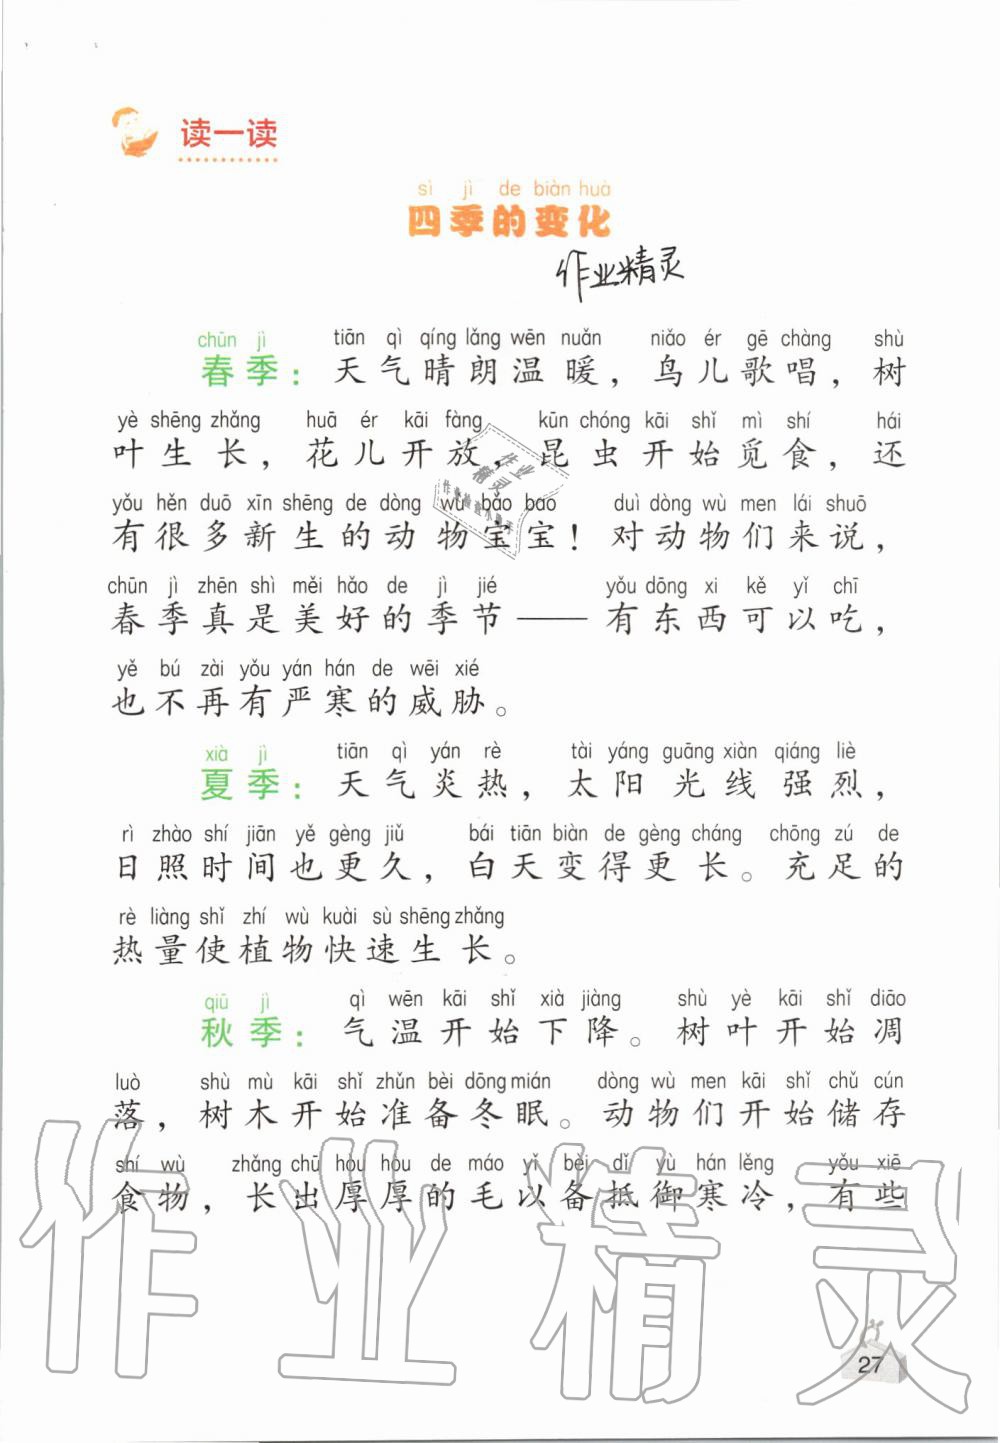 读一读
sì jì de biàn huà
四季的变化
作业精灵
chūn jì tiān qì qíng lǎng wēn nuǎn niǎo ér gē chàng shù
春季：天气晴朗温暖，鸟儿歌唱，树
yè shēng zhǎng huā ér kāi fàng kūn chóng kāi shǐ mì shí hái
叶生长，花儿开放，昆虫开始觅食，还
yǒu hěn duō xīn shēng de dòng wù bǎo bao duì dòng wù men lái shuō
有很多新生的动物宝宝！对动物们来说，
chūn jì zhēn shì měi hǎo de jì jié yǒu dōng xi kě yǐ chī
春季真是美好的季节——有东西可以吃，
yě bú zài yǒu yán hán de wēi xié
也不再有严寒的威胁。
xià jì tiān qì yán rè tài yáng guāng xiàn qiáng liè
夏季：天气炎热，太阳光线强烈，
rì zhào shí jiān yě gèng jiǔ bái tiān biàn de gèng cháng chōng zú de
日照时间也更久，白天变得更长。充足的
rè liàng shǐ zhí wù kuài sù shēng zhǎng
热量使植物快速生长。
qiū jì qì wēn kāi shǐ xià jiàng shù yè kāi shǐ diāo
秋季：气温开始下降。树叶开始凋
luò shù mù kāi shǐ zhǔn bèi dōng mián dòng wù men kāi shǐ chǔ cún
落，树木开始准备冬眠。动物们开始储存
shí wù zhǎng chū hòu hòu de máo yǐ bèi dǐ yù hán lěng yǒu xiē
食物，长出厚厚的毛以备抵御寒冷，有些
作业精灵
27